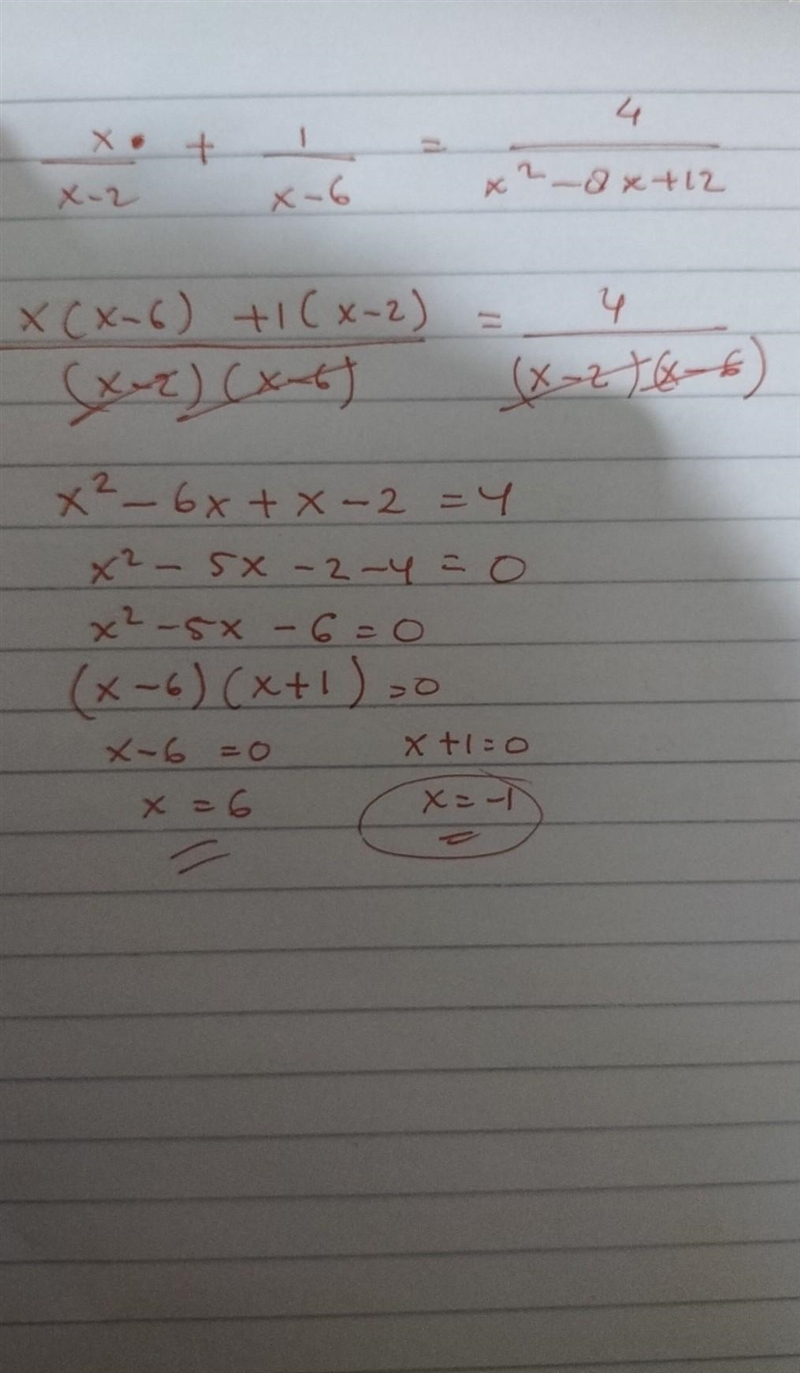 x/(x-2) + 1/(x-6) = 4/(x² - 8x + 12)
(x(x-6) + 1(x-2))/((x-2)(x-6)) = 4/((x-2)(x-6))
x² - 6x + x - 2 = 4
x² - 5x - 2 - 4 = 0
x² - 5x - 6 = 0
(x-6)(x+1) = 0
x-6 = 0 x+1 = 0
x = 6 x = -1